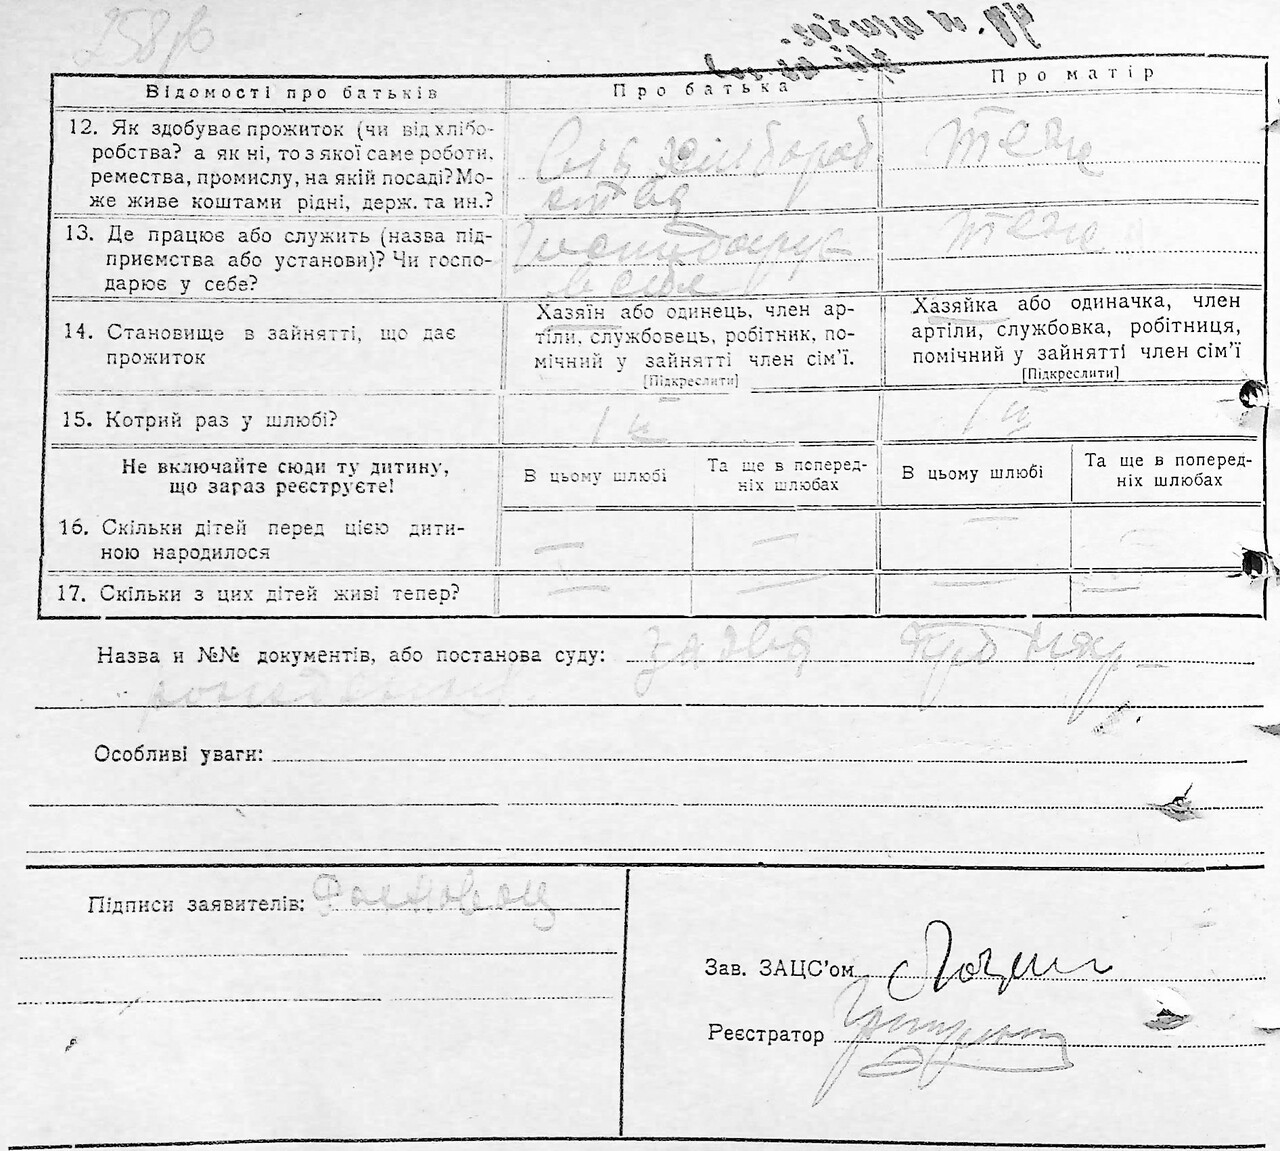 258 зв
Відомості про батьків
Про батька
Про матір
12. Як здобуває прожиток (чи від хлібо-
робства? а як ні, то з якої саме роботи,
ремества, промислу, на якій посаді? Мо-
же живе коштами рідні, держ. та ин.?
теж
13. Де працює або служить (назва під-
приємства або установи)? Чи госпо-
дарює у себе?
в себе
теж
14. Становище в зайнятті, що дає
прожиток
Хазяїн або одинець, член ар-
тіли, службовець, робітник, по-
мічний у зайнятті член сім’ї.
[Підкреслити]
Хазяйка або одиначка, член
артіли, службовка, робітниця,
помічний у зайнятті член сім’ї
[Підкреслити]
15. Котрий раз у шлюбі?
1 й
1 й
Не включайте сюди ту дитину,
що зараз реєструєте!
В цьому шлюбі
Та ще в поперед-
ніх шлюбах
В цьому шлюбі
Та ще в поперед-
ніх шлюбах
16. Скільки дітей перед цією дити-
ною народилося
— — — —
17. Скільки з цих дітей живі тепер?
— — — —
Назва и №№ документів, або постанова суду: заява про нар-
Особливі уваги:
Підписи заявителів:
Зав. ЗАЦС’ом
Реєстратор